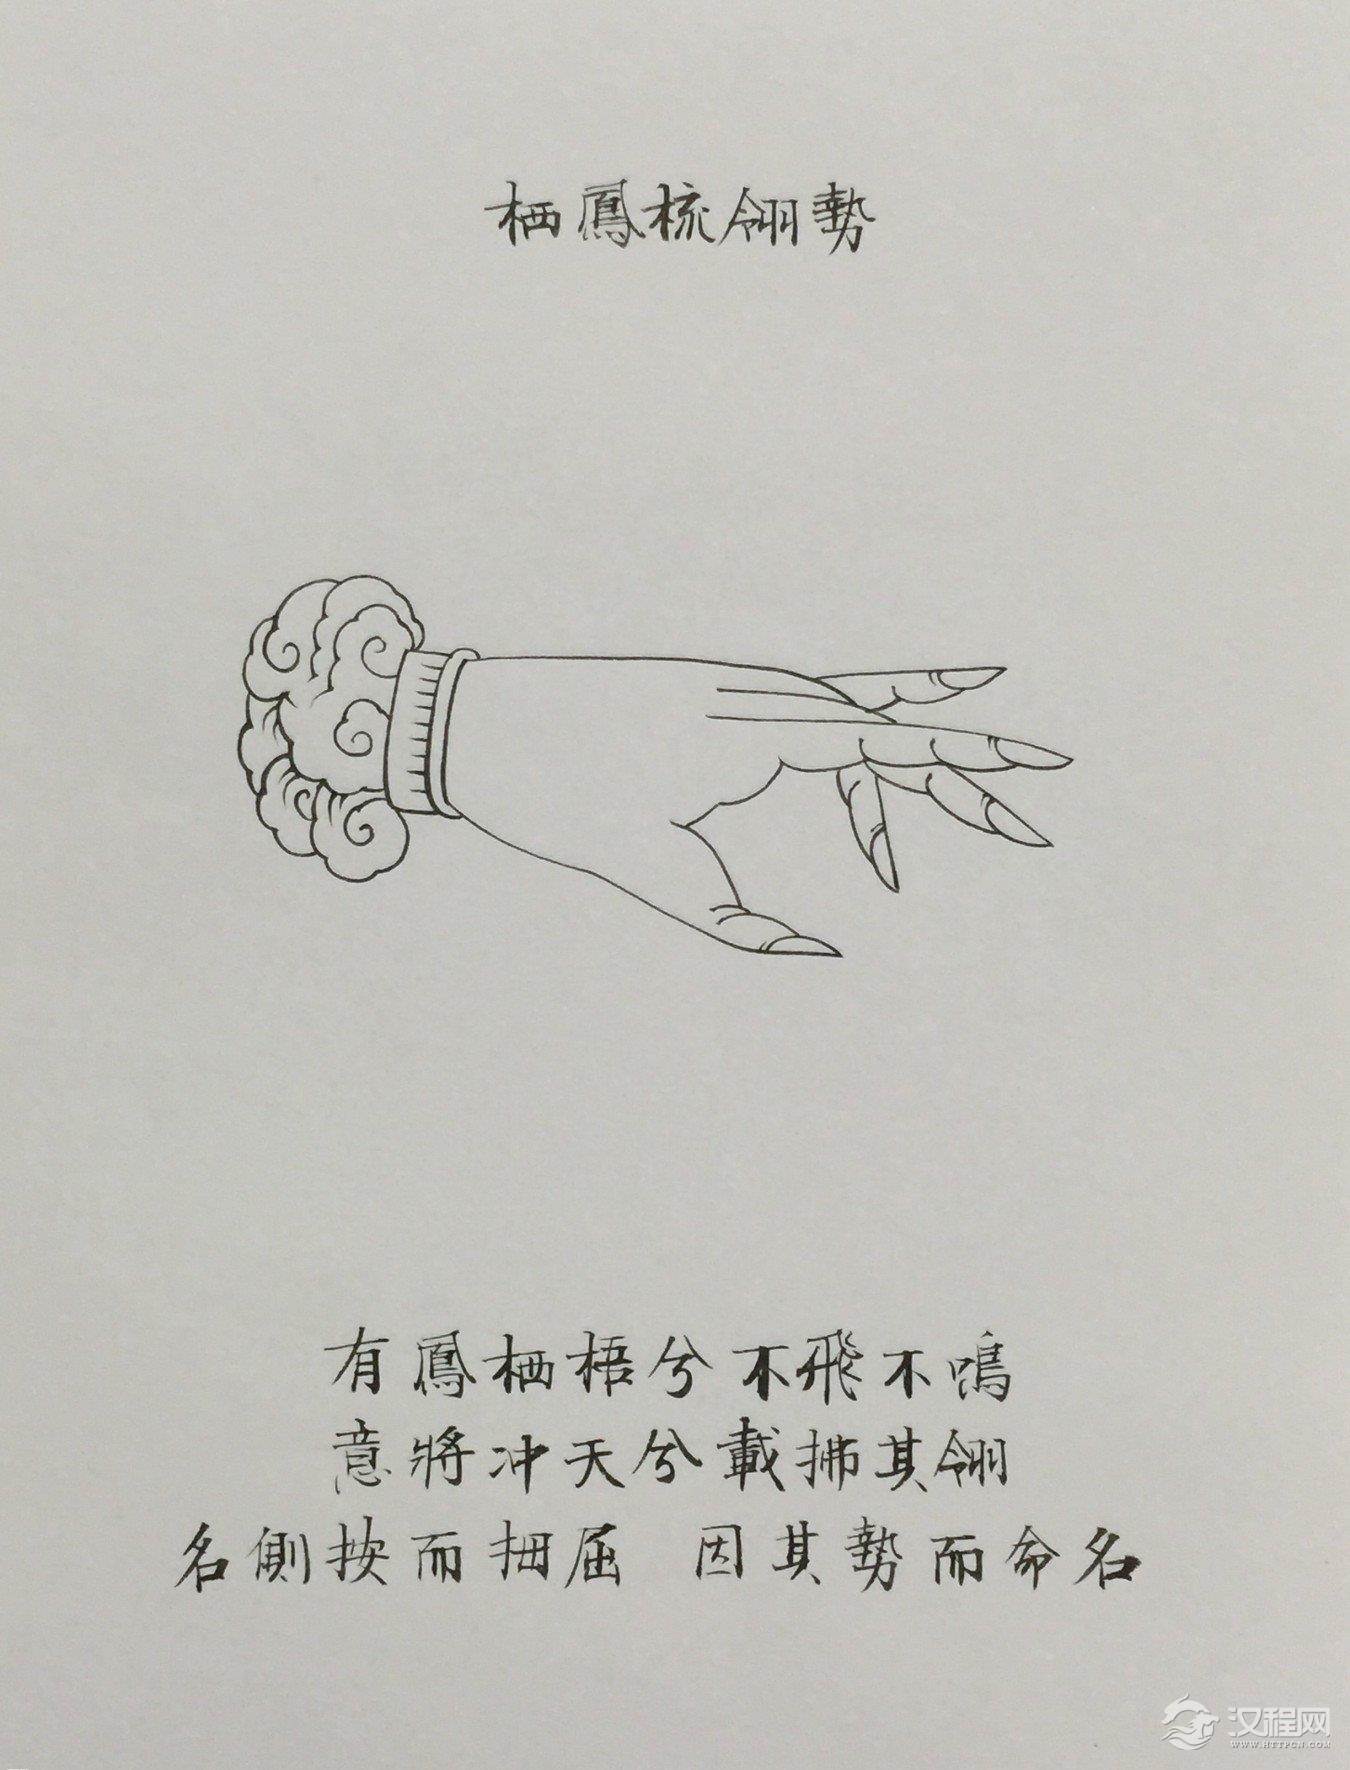 栖鳳梳翎勢
有鳳栖梧兮不飛不鳴
意將冲天兮載拂其翎
名側按而拇屈 因其勢而命名
汉程网
WWW.HTTPCN.COM